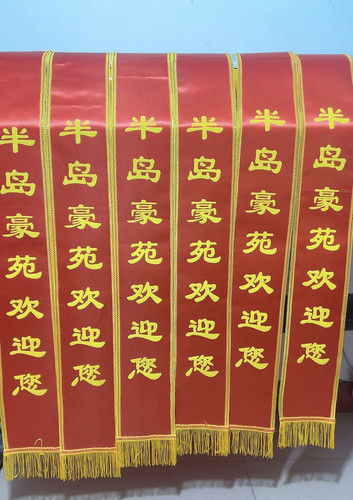 半岛豪苑欢迎您
半岛豪苑欢迎您
半岛豪苑欢迎您
半岛豪苑欢迎您
半岛豪苑欢迎您
半岛豪苑欢迎您